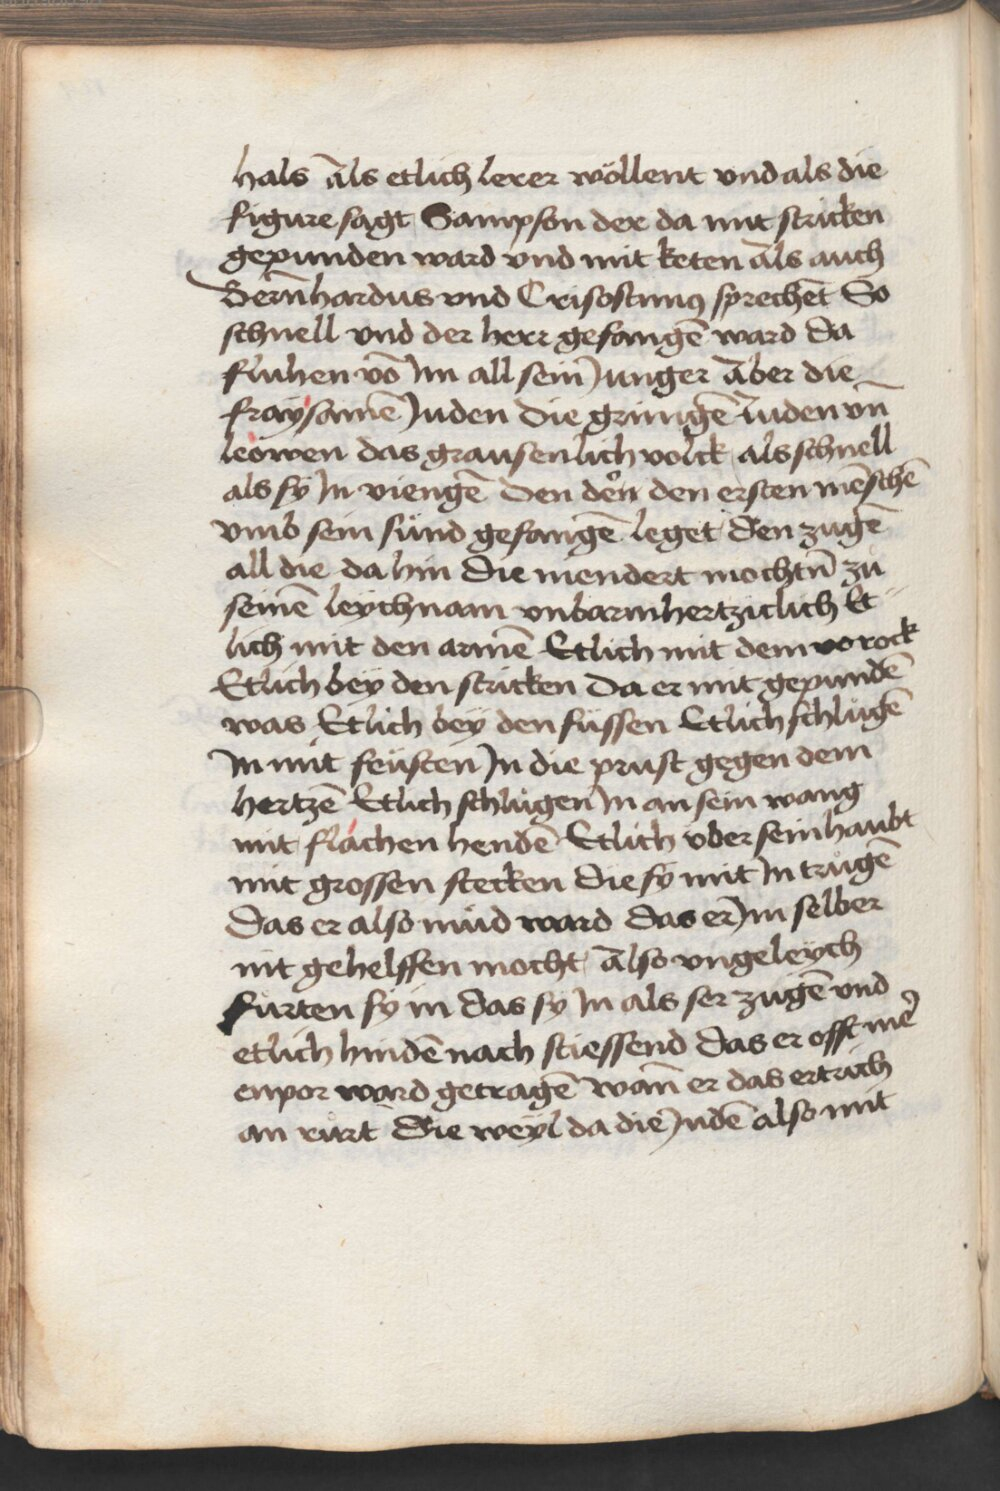 hals als etlich lerer wöllent vnd als die
figure sagt Sampson der da mit stricken
gepunden ward vnd mit keten als auch
Bern̄hardus vnd Crisostimus sprechēt So
schnell vnd der herr gefangē ward da
fluhen vō Im all sein Junger aber die
fraysamē Juden die grimigē Juden vn̄
leowen das grausenlich volck als schnell
als sy In viengē den der den ersten mēschē
vmb sein sünd gefangē leget Den zugē
all die da hin die niendert mochtn̄ zů
seinē leychnam vnbarmhertziclich Et
lich mit den armē Etlich mit dem vorock
Etlich bey den stricken Da er mit gepundē
was Etlich bey den füssen Etlich schlůgē
In mit feüsten In die prust gegen dem
hertzē Etlich schlůgen In an sein wang
mit flachen hendē Etlich vber sein haubt
mit grossen stecken die sy mit In trůgē
Das er also müd ward das er Im selber
nit gehelffen mocht also vngeleych
fürten sy in das sy In als ser zugē vnd
etlich hindē nach stiessend das er offt mē
enpor ward getragē wan̄ er das ertrich
an růrt Die weyl da die Judē also mit